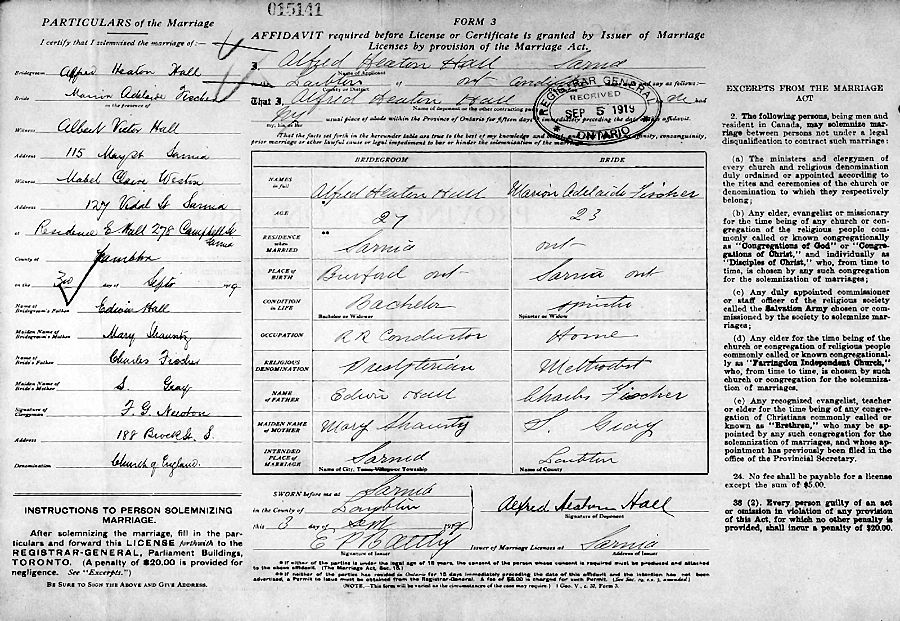 015141
PARTICULARS of the Marriage
I certify that I solemnized the marriage of:—
Bridegroom Alfred Heaton Hall
Bride Marion Adelaide Fischer
in the presence of
Witness Albert Victor Hall
Address 115 May st Sarnia
Witness Mabel Claire Weston
Address 127 Vidal St Sarnia
at Residence E Hall 278 Campbell St
Sarnia
County of Lambton
on the 3rd day of Sept 19
Name of Bridegroom's Father Edwin Hall
Maiden Name of Bridegroom's Mother Mary
Name of Bride's Father Charles Fischer
Maiden Name of Bride's Mother S. Gray
Signature of Clergyman F. G. Newton
Address 188 Brock St. S.
Denomination Church of England.
INSTRUCTIONS TO PERSON SOLEMNIZING
MARRIAGE.
After solemnizing the marriage, fill in the par-
ticulars and forward this LICENSE forthwith to the
REGISTRAR-GENERAL, Parliament Buildings,
TORONTO. (A penalty of $20.00 is provided for
negligence. See "Excerpts.")
BE SURE TO SIGN THE ABOVE AND GIVE ADDRESS.
FORM 3
AFFIDAVIT required before License or Certificate is granted by Issuer of Marriage
Licenses by provision of the Marriage Act.
I, Alfred Heaton Hall Sarnia
Name of Applicant
Lambton ont Conductor and say as follows:—
County or District
That I, Alfred Heaton Hall
Name of Deponent or the other contracting party
usual place of abode within the Province of Ontario for fifteen days immediately preceding the date of affidavit.
REGISTRAR GENERAL
RECEIVED
SEP 5 1919
ONTARIO
(That the facts set forth in the hereunder table are true to the best of my knowledge and consanguinity,
prior marriage or other lawful cause or legal impediment to bar or hinder the solemnization of the marriage.
BRIDEGROOM BRIDE
NAMES in full Alfred Heaton Hall Marion Adelaide Fischer
AGE 27 23
RESIDENCE when MARRIED Sarnia ont
PLACE OF BIRTH Burford ont Sarnia ont
CONDITION IN LIFE Bachelor spinster
Bachelor or Widower Spinster or Widow
OCCUPATION RR Conductor Home
RELIGIOUS DENOMINATION Presbyterian Methodist
NAME OF FATHER Edwin Hall Charles Fischer
MAIDEN NAME OF MOTHER Mary S. Gray
INTENDED PLACE OF MARRIAGE Sarnia Lambton
Name of City, Town, Village or Township Name of County
SWORN before me at Sarnia
in the County of Lambton
this 3 day of Sept 19
Alfred Heaton Hall
Signature of Deponent
Signature of Issuer
Issuer of Marriage Licenses at Sarnia
Address of Issuer
If either of the parties is under the legal age of 18 years, the consent of the person whose consent is required must be produced and attached
to the above affidavit. (The Marriage Act, Sec. 15.)
If neither of the parties has resided in Ontario for 15 days immediately preceding the date of this affidavit and the intention has not been
advertised, a Permit to issue must be obtained from the Registrar-General. A fee of $5.00 is charged for such Permit.
(NOTE.—This form will be varied as the circumstances of the case may require.) 1 Geo. V., c. 32, Form 3.
EXCERPTS FROM THE MARRIAGE
ACT
2. The following persons, being men and
resident in Canada, may solemnize mar-
riage between persons not under a legal
disqualification to contract such marriage:
(a) The ministers and clergymen of
every church and religious denomination
duly ordained or appointed according to
the rites and ceremonies of the church or
denomination to which they respectively
belong;
(b) Any elder, evangelist or missionary
for the time being of any church or con-
gregation of the religious people com-
monly called or known congregationally
as "Congregations of God" or "Congre-
gations of Christ," and individually as
"Disciples of Christ," who, from time to
time, is chosen by any such congregation
for the solemnization of marriages;
(c) Any duly appointed commissioner
or staff officer of the religious society
called the Salvation Army chosen or com-
missioned by the society to solemnize mar-
riages;
(d) Any elder for the time being of the
church or congregation of religious people
commonly called or known congregational-
ly as "Farringdon Independent Church,"
who, from time to time, is chosen by such
church or congregation for the solemniza-
tion of marriages.
(e) Any recognized evangelist, teacher
or elder for the time being of any congre-
gation of Christians commonly called or
known as "Brethren," who may be ap-
pointed by any such congregation for the
solemnization of marriages, and whose ap-
pointment has previously been filed in the
office of the Provincial Secretary.
24. No fee shall be payable for a license
except the sum of $5.00.
38 (2). Every person guilty of an act
or omission in violation of any provision
of this Act, for which no other penalty is
provided, shall incur a penalty of $20.00.